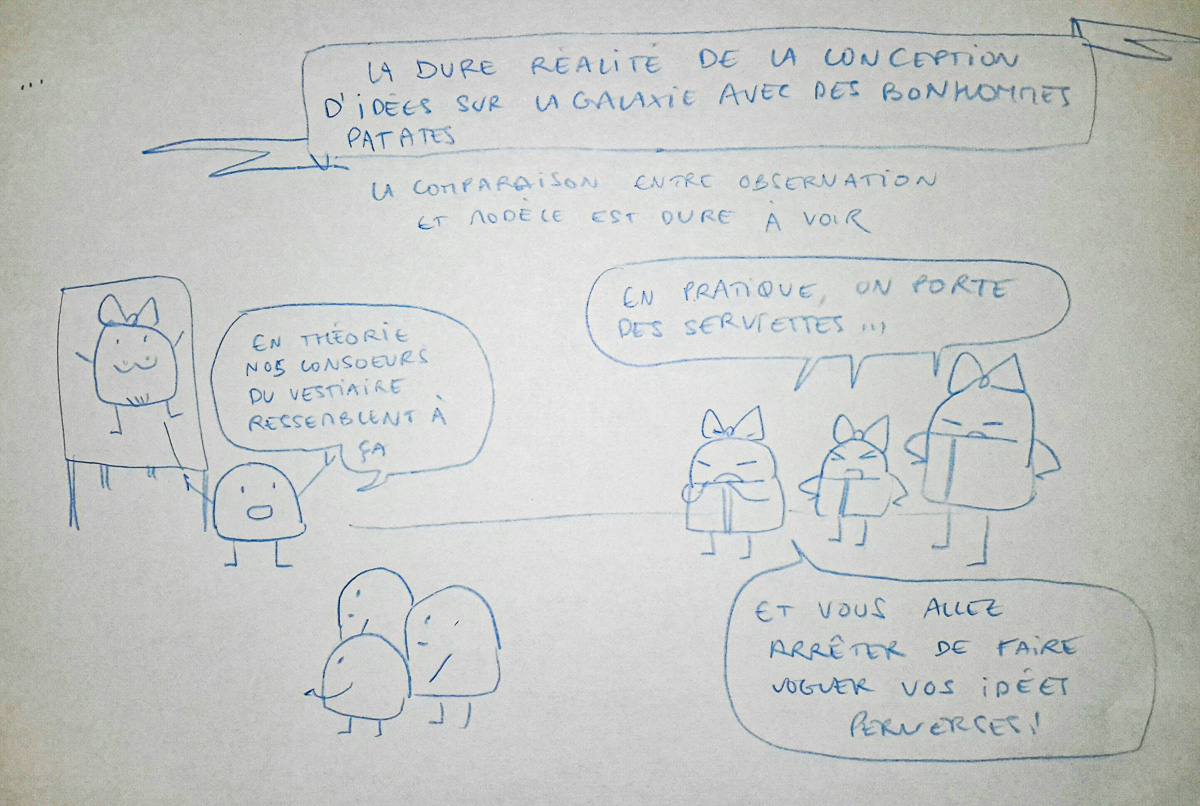 ...
LA DURE RÉALITÉ DE LA CONCEPTION
D'IDÉES SUR LA GALAXIE AVEC DES BONHOMMES
PATATES
LA COMPARAISON ENTRE OBSERVATION
ET MODÈLE EST DURE À VOIR
EN THÉORIE
NOS CONSOEURS
DU VESTIAIRE
RESSEMBLENT À
ÇA
EN PRATIQUE, ON PORTE
DES SERVIETTES...
ET VOUS ALLEZ
ARRÊTER DE FAIRE
VOGUER VOS IDÉES
PERVERSES!